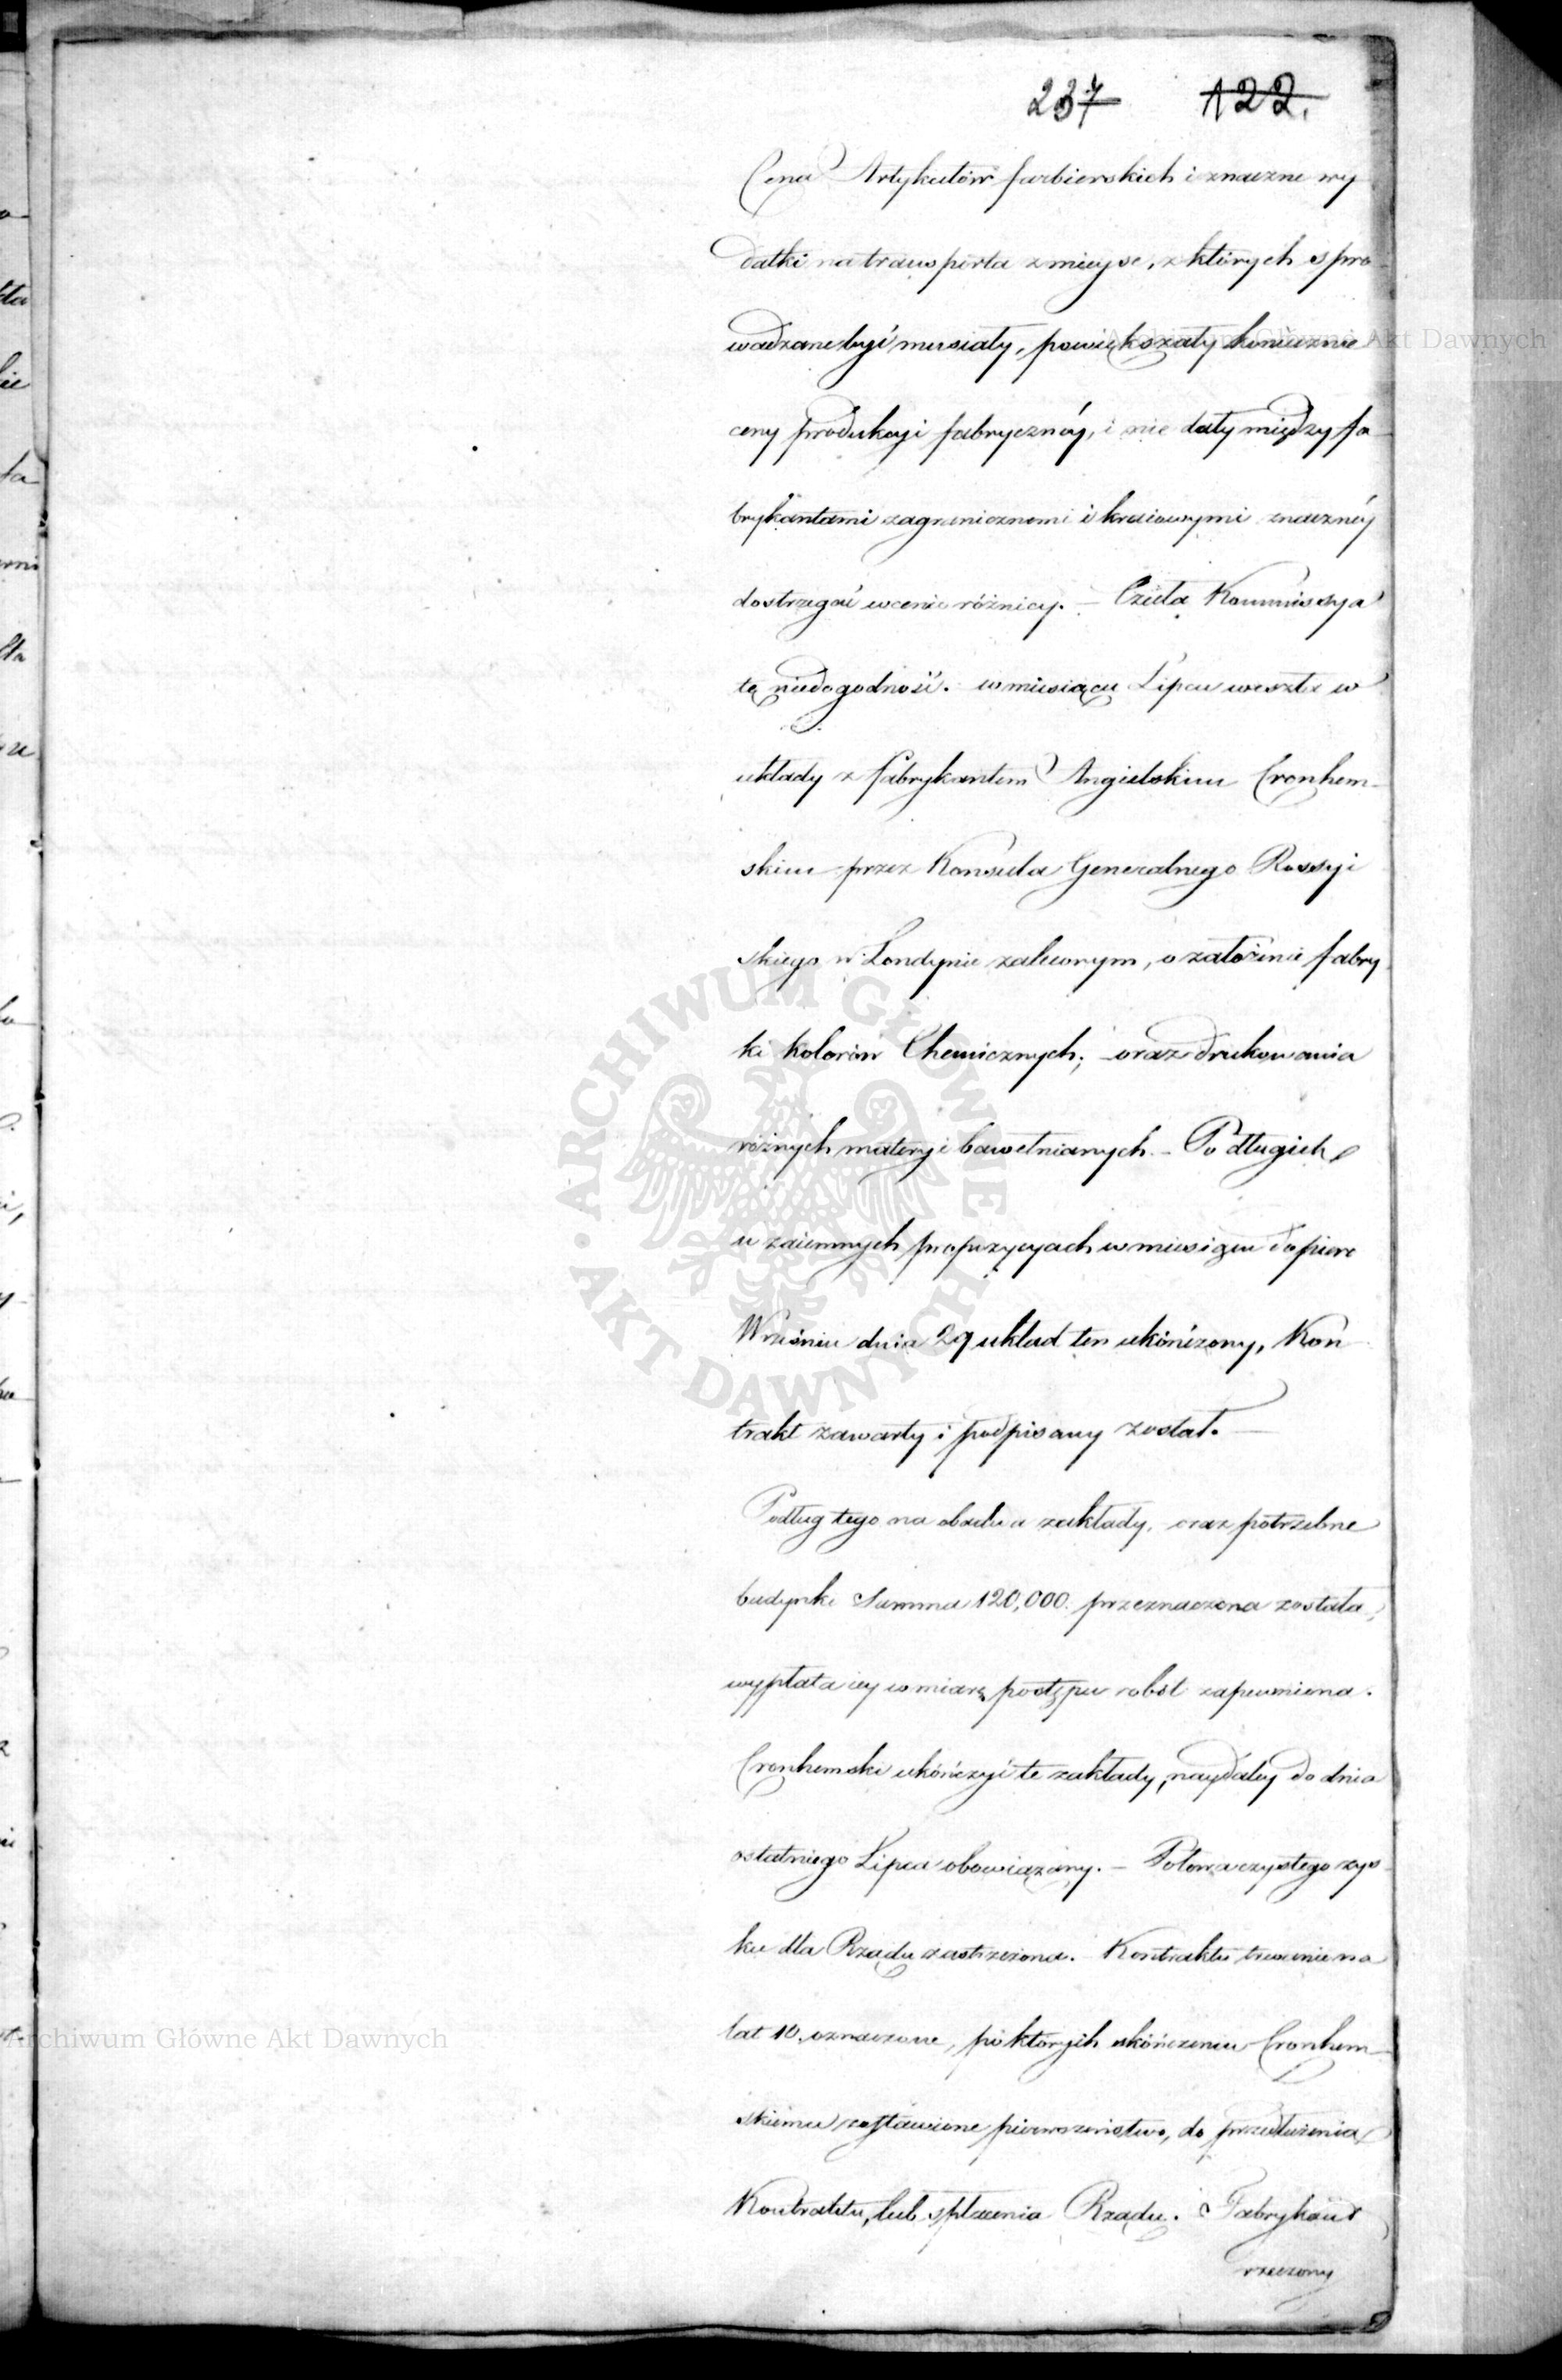 237 122.
Cena Artykułów farbierskich i znaczne wy
datki na transporta z mieysc, z których spro
wadzane być musiały, powiększały koniecznie
ceny produkcyi fabrycznéy, i nie dały między fa
brykantami zagranicznemi i kraiowymi znacznéy
dostrzegać w cenie różnicy. – Czuła Kommissya
tę niedogodność. w miesiącu Lipcu weszła w
układy z fabrykantem Angielskim Cronhem-
skim przez Konsula Generalnego Rossyi
skiego w Londynie zaleconym, o założenie fabry
ki kolorów Chemicznych; oraz drukowania
różnych materyi bawełnianych. – Po długich
w zaiemnych propozycyach w miesiącu dopiero
Wrześniu dnia 29 układ ten ukończony, Kon
trakt zawarty i podpisany został. —
Podług tego na obadwa zakłady, oraz potrzebne
budynki Summa 120,000. przeznaczona została,
wypłata iey w miarę postępu robót zapewniona.
Cronhemski ukończyć te zakłady, naydaléy do dnia
ostatniego Lipca obowiązany. – Połowa czystego zys-
ku dla Rządu zastrzeżona. Kontraktu trwanie na
lat 10. oznaczone, po których skończeniu Cronhem-
skiemu zostawione pierwszeństwo, do przedłużenia
Kontraktu, lub spłacenia Rządu. Fabrykant
rzeczony
Archiwum Główne Akt Dawnych
ARCHIWUM GŁÓWNE · AKT DAWNYCH ·
Archiwum Główne Akt Dawnych